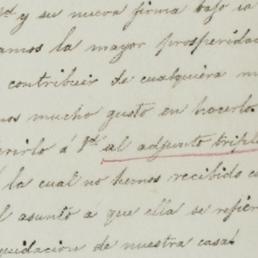 y su nueva firma bajo la
amos la mayor prosperidad
contribuir de cualquiera m
os mucho gusto en hacerlo.
erirlo á Vd. al adjunto tripli
la cual no hemos recibido co
l asunto á que ella se refier
quidacion de nuestra casa